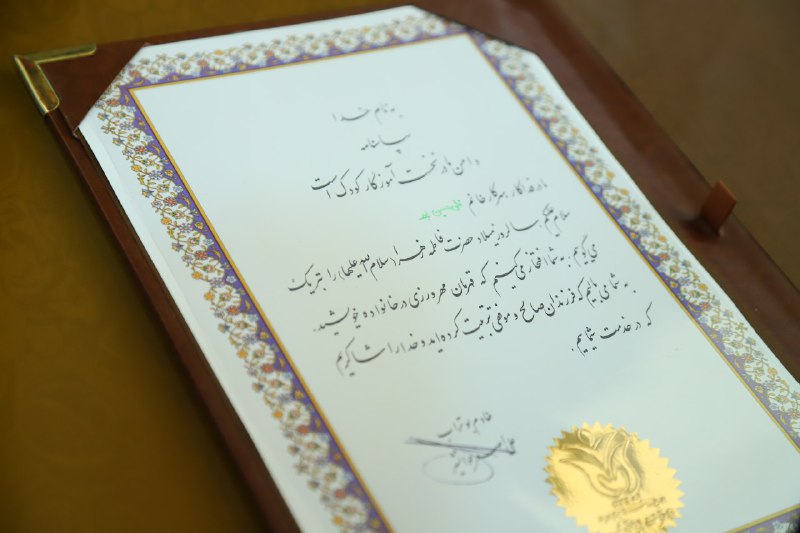 به نام خدا
سپاسنامه
دامن مادر نخست آموزگار کودک است
مادر فداکار، سرکار خانم
سلام علیکم، سالروز میلاد حضرت فاطمه زهرا (سلام الله علیها) را تبریک
می گوییم، به شما افتخار می کنیم که قهرمان مهرورزی در خانواده خویشید.
به شما می بالیم که فرزندان صالح و موفقی تربیت کرده اید و خدا را شاکریم
که در خدمت شماییم.